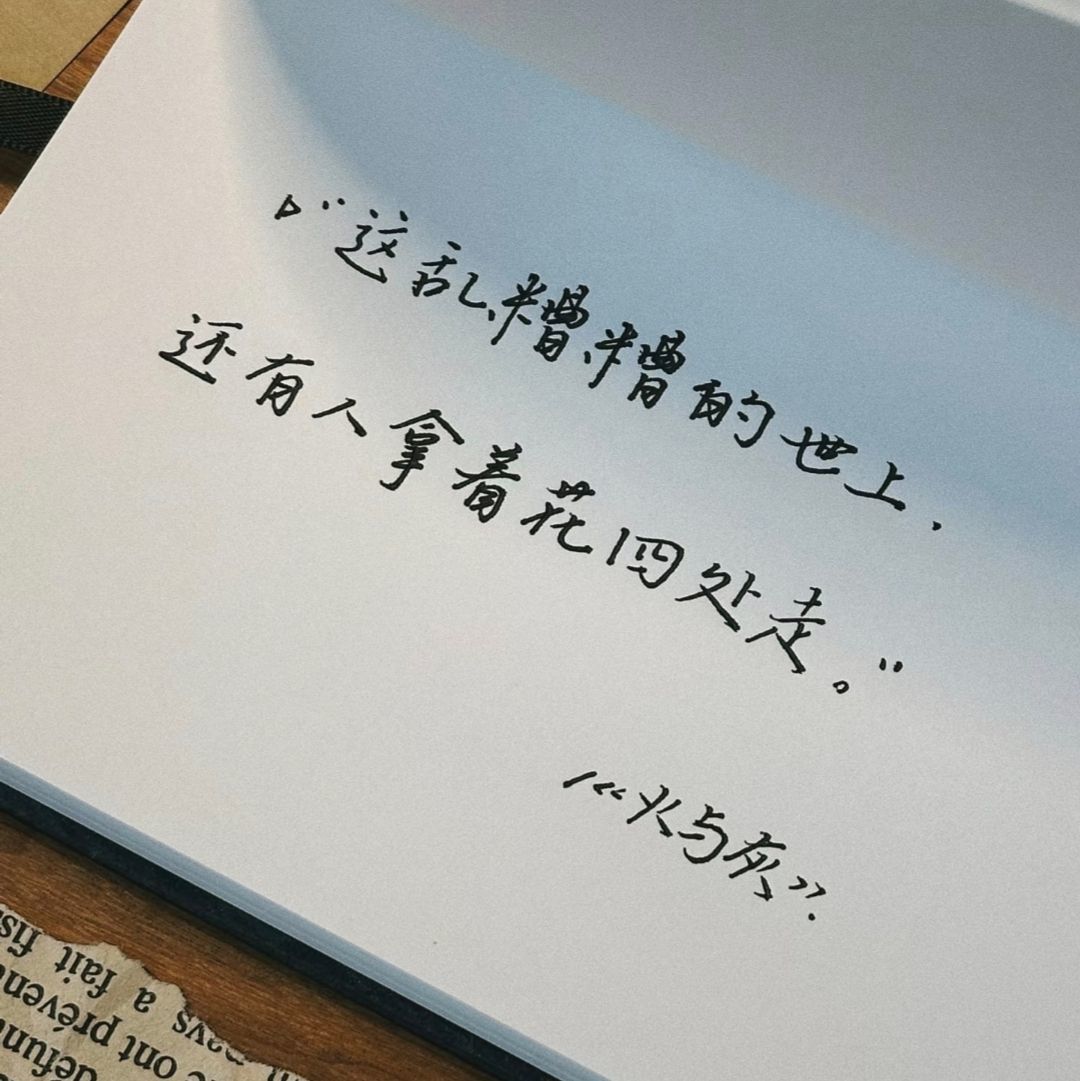 ▷“这乱糟糟的世上.
还有人拿着花四处走。”
/《火与灰》.
fis
pays a fait
ont préven
défun